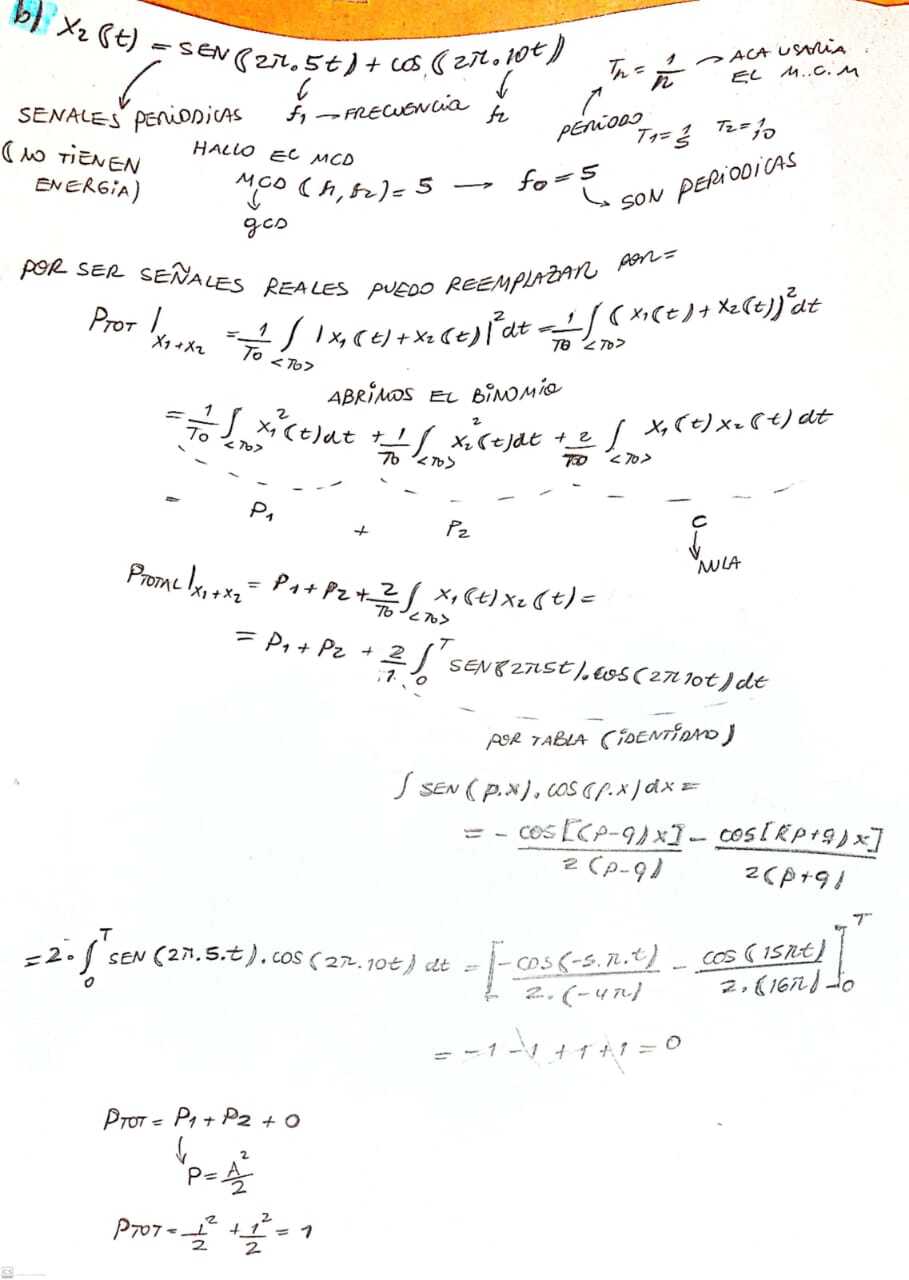 b) X₂(t) = SEN(2π.5t) + COS(2π.10t)
Tn = 1/n → ACA USARIA EL M.C.M
SENALES PERIODICAS f₁ → FRECUENCIA f₂
PERIODO T₁ = 1/5 T₂ = 1/10
(NO TIENEN ENERGIA)
HALLO EL MCD
MCD (f₁, f₂) = 5 → f₀ = 5
gcd
SON PERIODICAS
POR SER SEÑALES REALES PUEDO REEMPLAZAR POR =
PTOT |x₁+x₂ = 1/T₀ ∫<T₀> |x₁(t) + x₂(t)|² dt = 1/T₀ ∫<T₀> (x₁(t) + x₂(t))² dt
ABRIMOS EL BINOMIO
= 1/T₀ ∫<T₀> x₁²(t)dt + 1/T₀ ∫<T₀> x₂²(t)dt + 2/T₀ ∫<T₀> x₁(t) x₂(t) dt
= P₁ + P₂ C
NULA
PTOTAL |x₁+x₂ = P₁ + P₂ + 2/T₀ ∫<T₀> x₁(t) x₂(t) =
= P₁ + P₂ + 2/1 ∫₀ᵀ SEN(2π5t).COS(2π10t) dt
POR TABLA (IDENTIDAD)
∫ SEN(p.x).COS(p.x) dx =
= - COS[(p-q)x] / 2(p-q) - COS[(p+q)x] / 2(p+q)
= 2. ∫₀ᵀ SEN(2π.5.t).COS(2π.10t) dt = [- COS(-5.π.t) / 2.(-4π) - COS(15πt) / 2.(16π)]₀ᵀ
= -1 -1 +1 +1 = 0
PTOT = P₁ + P₂ + 0
P = A²/2
PTOT = 1²/2 + 1²/2 = 1
CS